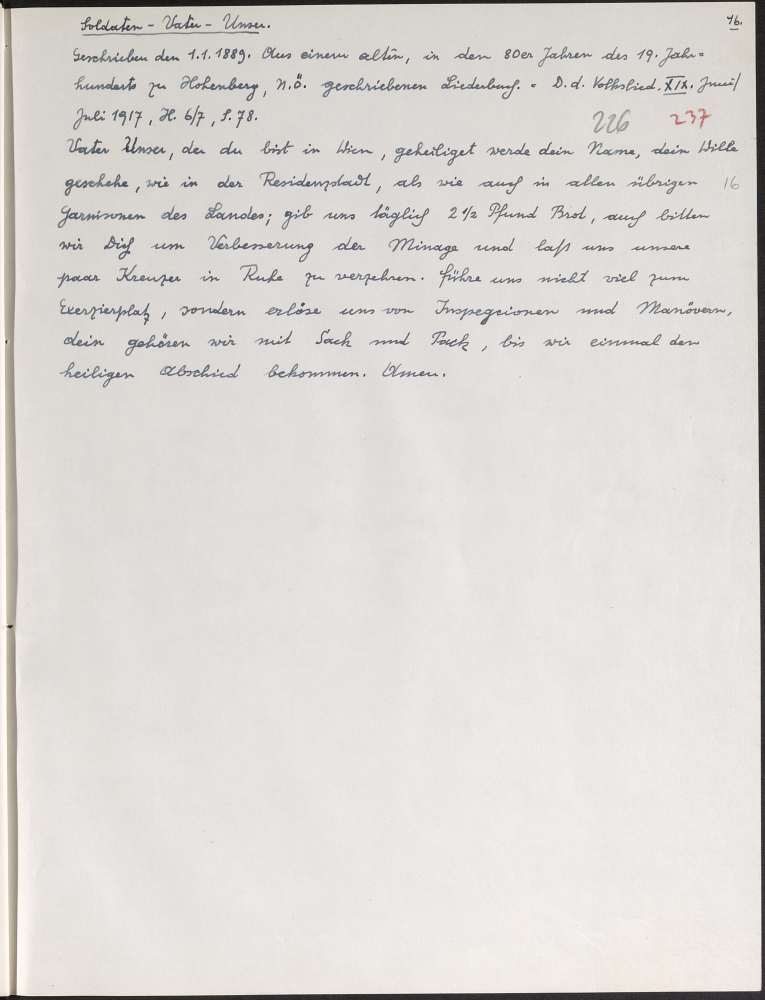 16.
Soldaten - Vater - Unser.
Geschrieben den 1.1.1889. Aus einem alten, in den 80er Jahren des 19. Jahr=
hunderts zu Hohenberg, N.Ö. geschriebenen Liederbuch. = D.d. Volkslied. XIX. Juni/
Juli 1917, H. 6/7, S. 78.
226 237
Vater Unser, der du bist in Wien, geheiliget werde dein Name, dein Wille
geschehe, wie in der Residenzstadt, als wie auch in allen übrigen 16
Garnisonen des Landes; gib uns täglich 2 1/2 Pfund Brot, auch bitten
wir Dich um Verbesserung der Minage und laß uns unsere
paar Kreuzer in Ruhe zu verzehren. führe uns nicht viel zum
Exerzierplatz, sondern erlöse uns von Inspegcionen und Manövern,
dein gehören wir mit Sack und Pack, bis wir einmal den
heiligen Abschied bekommen. Amen.